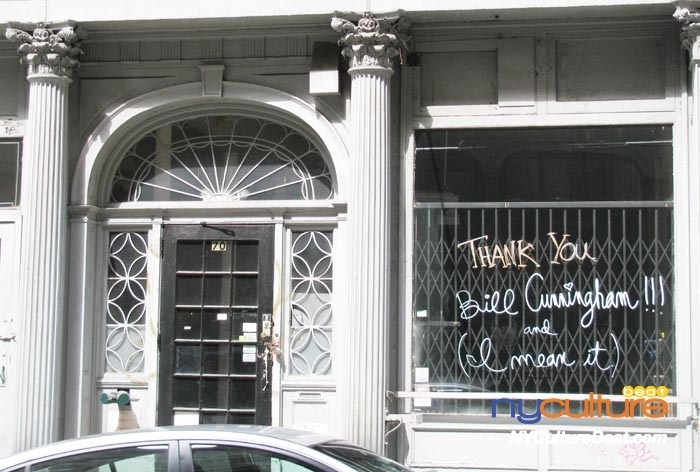 70
THANK YOU
Bill Cunningham!!!
and
(I mean it.)
nyculture beat
NYCultureBeat.com